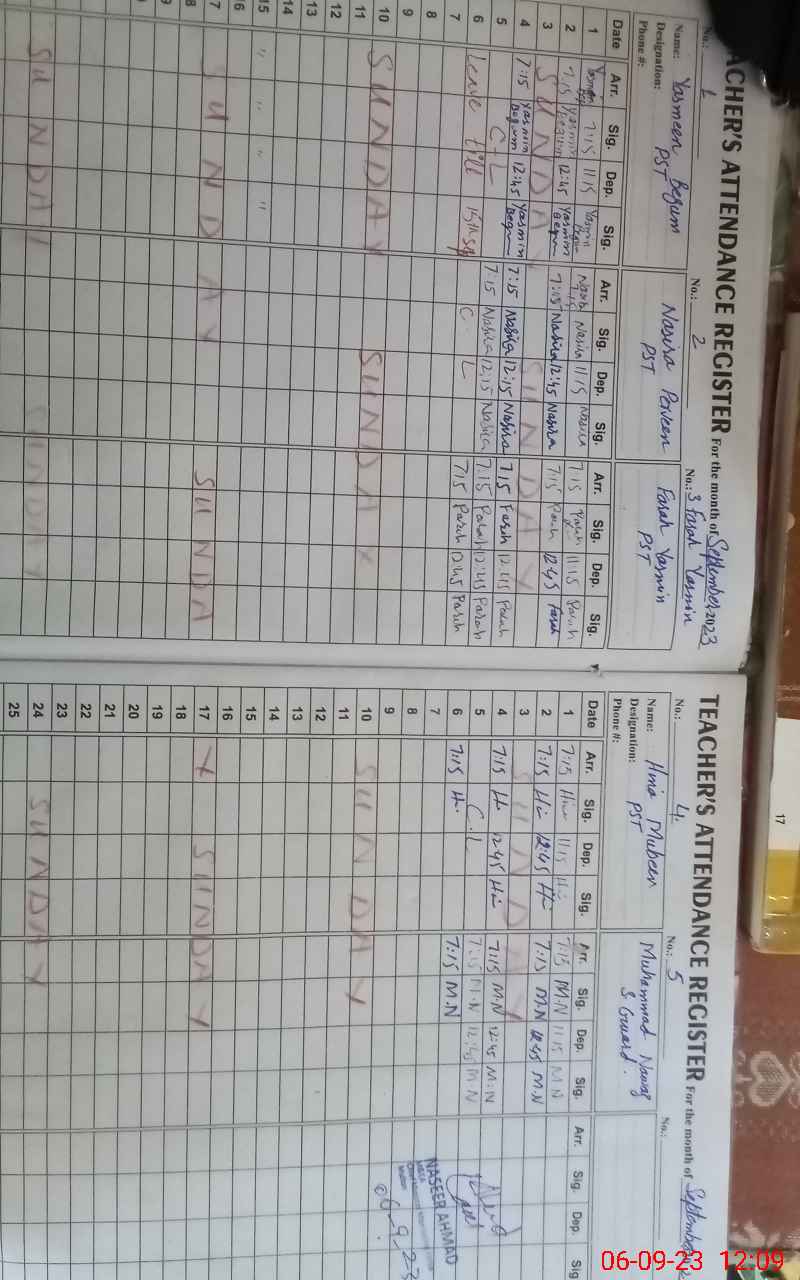 TEACHER'S ATTENDANCE REGISTER For the month of September 2023
No.: 1
No.: 2
No.: 3 Farah Yasmin
Name: Yasmeen Begum
Nasira Perveen
Farah Yasmin
Designation: PST
PST
PST
Phone #:
Date Arr. Sig. Dep. Sig. Arr. Sig. Dep. Sig. Arr. Sig. Dep. Sig.
1 7:15 11:15 Yasmin Begum Nasira 11:15 Nasira 7:15 Farah 11:15 Farah
2 7:15 Yasmin Begum 12:45 Yasmin Begum 7:15 Nasira 12:45 Nasira 7:15 Farah 12:45 Farah
3 SUNDAY SUNDAY
4 7:15 Yasmin Begum 12:45 Yasmin Begum 7:15 Nasira 12:15 Nasira 7:15 Farah 12:45 Farah
5 C-L 7:15 Nasira 12:15 Nasira 7:15 Farah 12:45 Farah
6 Leave till C L 7:15 Farah 12:45 Farah
7
8
9
10 SUNDAY SUNDAY
11
12
13
14
15 " " " "
16
17 SUNDAY SUNDA
18
SUNDAY SUNDAY
TEACHER'S ATTENDANCE REGISTER For the month of September
No.: 4.
No.: 5
No.:
Name: Hina Mubeen
Muhammad Nawaz
Designation: PST
S. Guard.
Phone #:
Date Arr. Sig. Dep. Sig. Arr. Sig. Dep. Sig. Arr. Sig. Dep. Sig
1 7:15 Hi 11:15 Hi 7:15 M.N 11:15 M.N
2 7:15 Hi 12:45 Hi 7:15 M.N 12:45 M.N
3 SUNDAY
4 7:15 Hi 12:45 Hi 7:15 M.N 12:45 M.N
5 C.L 7:15 M.N 12:45 M.N
6 7:15 Hi 7:15 M.N
7
8
9
10 SUNDAY
11
12
13
14
15
16
17 Y SUNDAY
18
19
20
21
22
23
24 SUNDAY
25
NASEER AHMAD
06-9-23
17
06-09-23 12:09